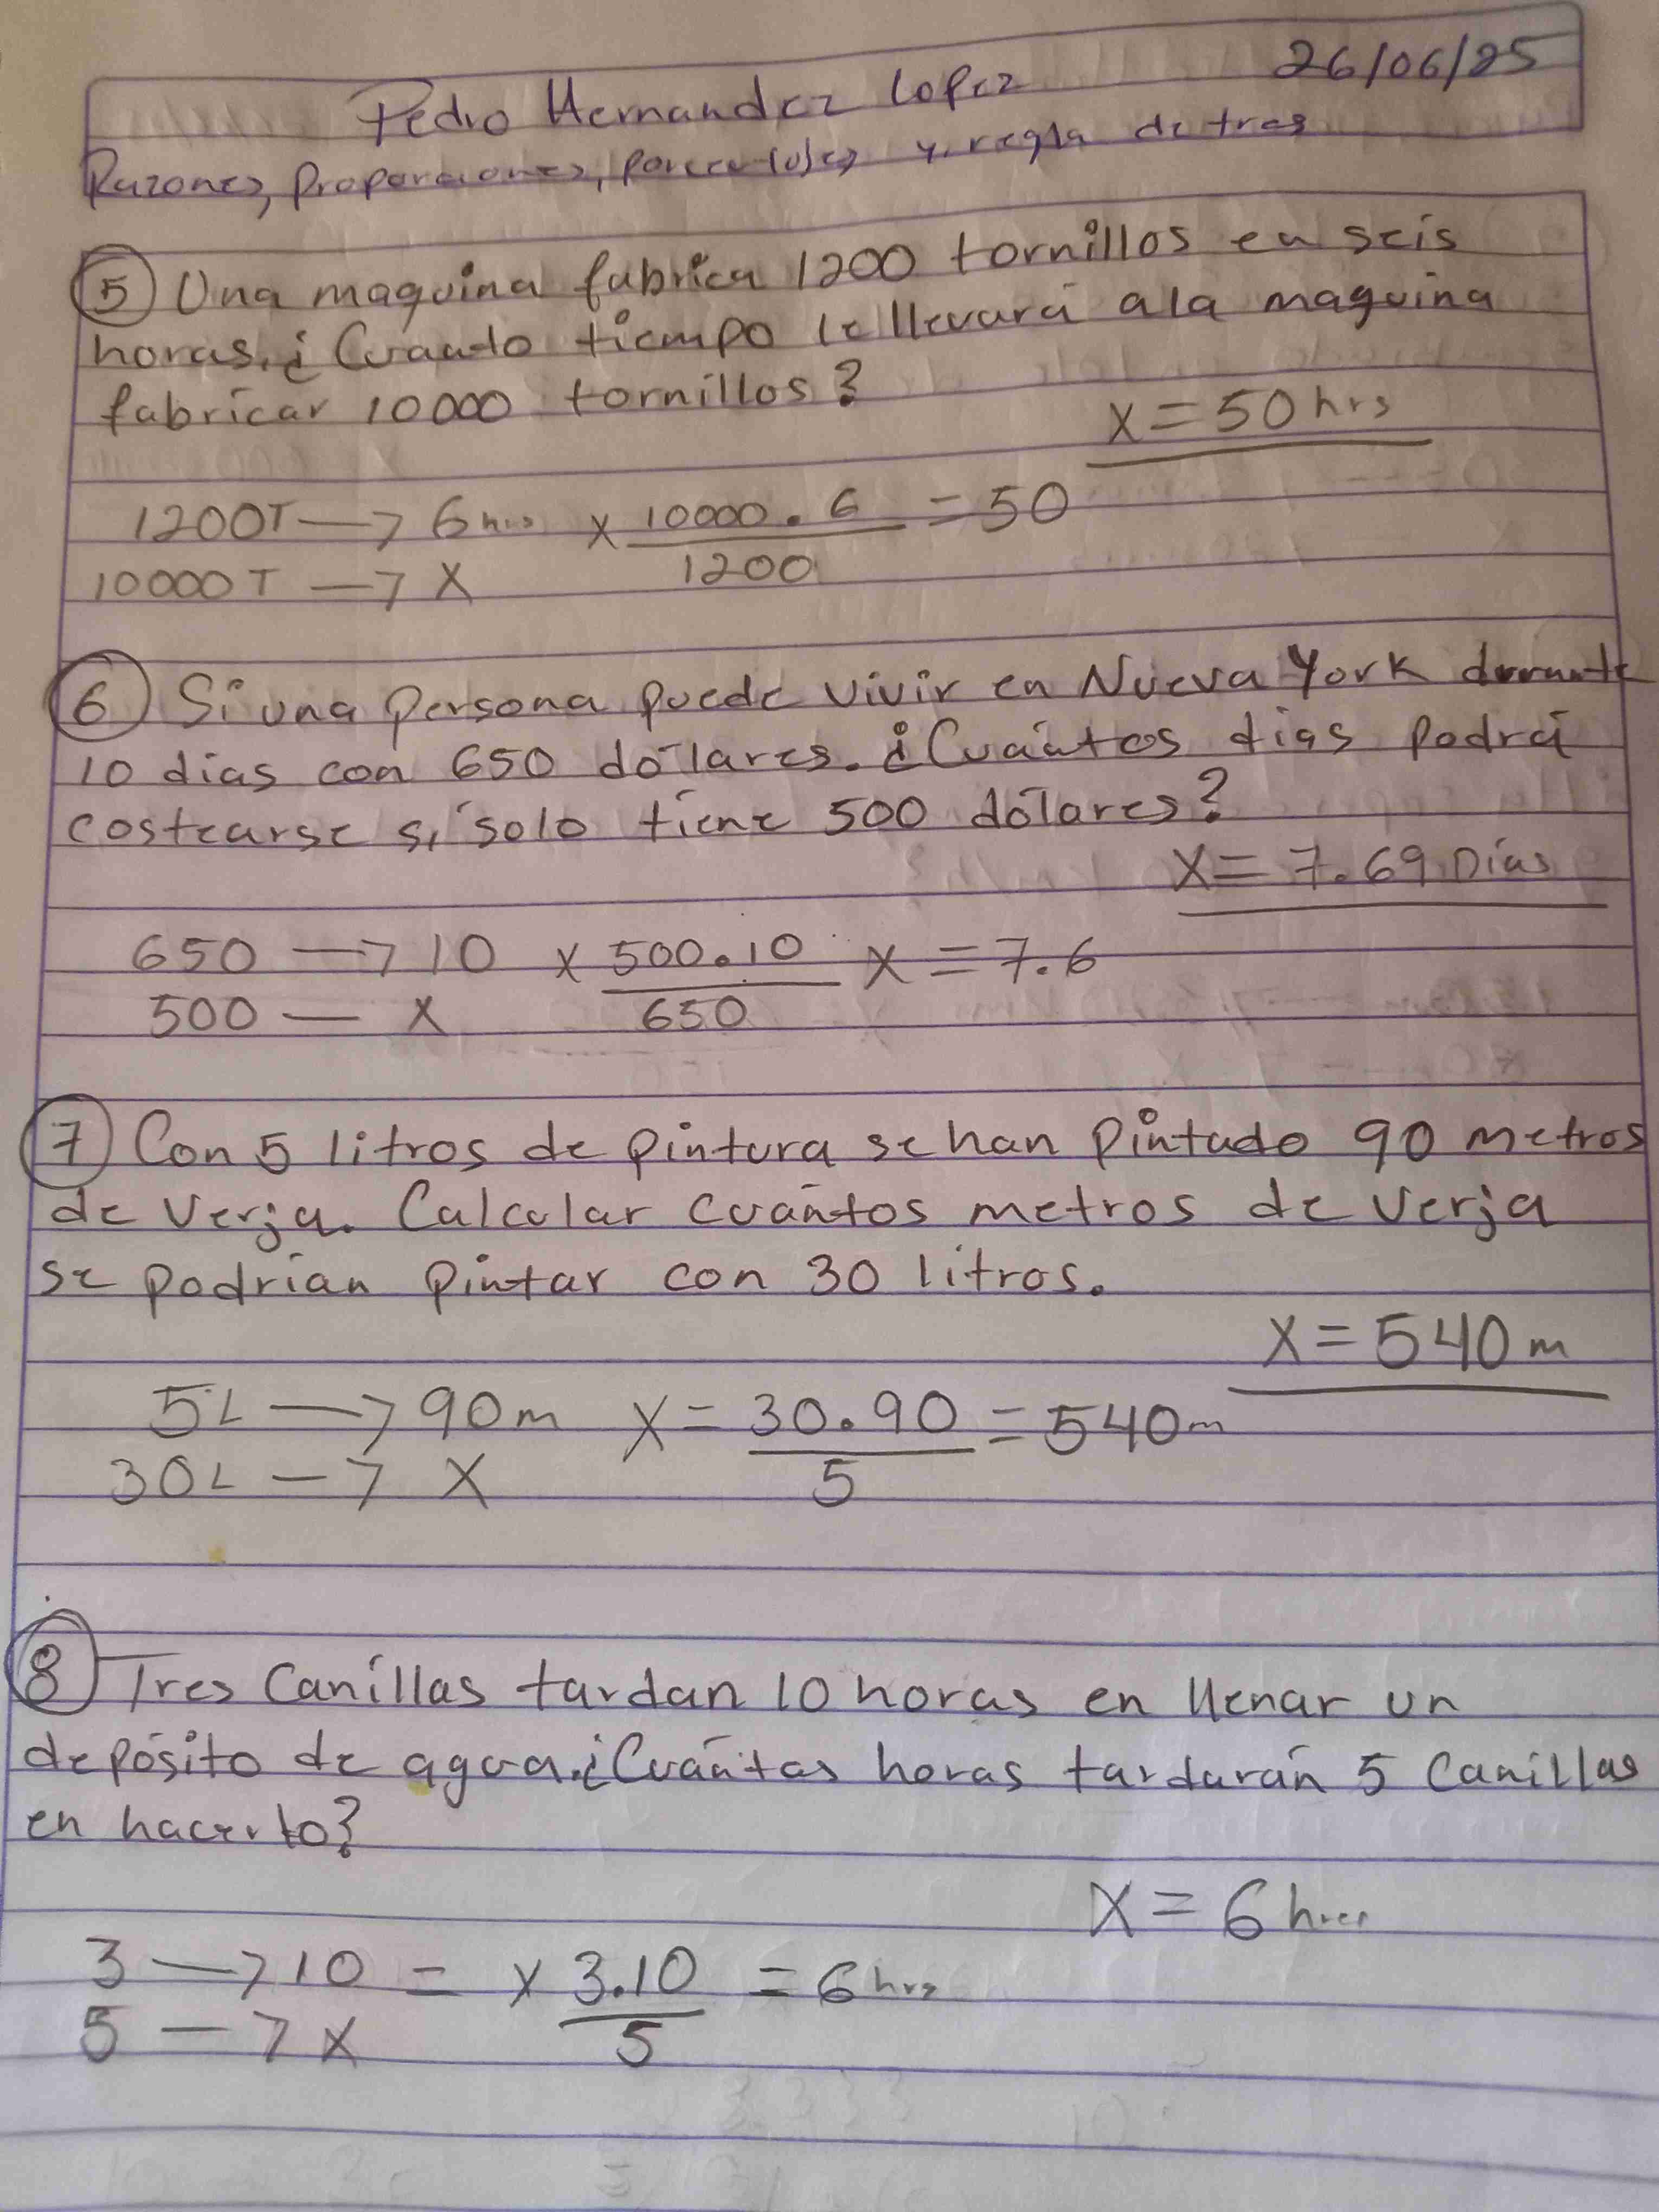 Pedro Hernandez Lopez 26/06/25
Razones, Proporciones, porcentajes y regla de tres
5 Una maquina fabrica 1200 tornillos en seis
horas. ¿Cuando tiempo le llevará a la maquina
fabricar 10000 tornillos?
X = 50 hrs
1200T → 6 hrs x 10000 . 6 = 50
1200
10000 T → X
6 Si una persona puede vivir en Nueva York durante
10 dias con 650 dólares. ¿Cuántos dias podrá
costearse si solo tiene 500 dólares?
X = 7.69 Días
650 → 10 x 500.10 x = 7.6
500 — x 650
7 Con 5 litros de pintura se han pintado 90 metros
de verja. Calcular cuántos metros de verja
se podrían pintar con 30 litros.
X = 540 m
5L → 90 m X = 30.90 = 540 m
30L → X 5
8 Tres Canillas tardan 10 horas en llenar un
depósito de agua. ¿Cuántas horas tardarán 5 Canillas
en hacerlo?
X = 6 hrs
3 → 10 = x 3.10 = 6 hrs
5 → x 5